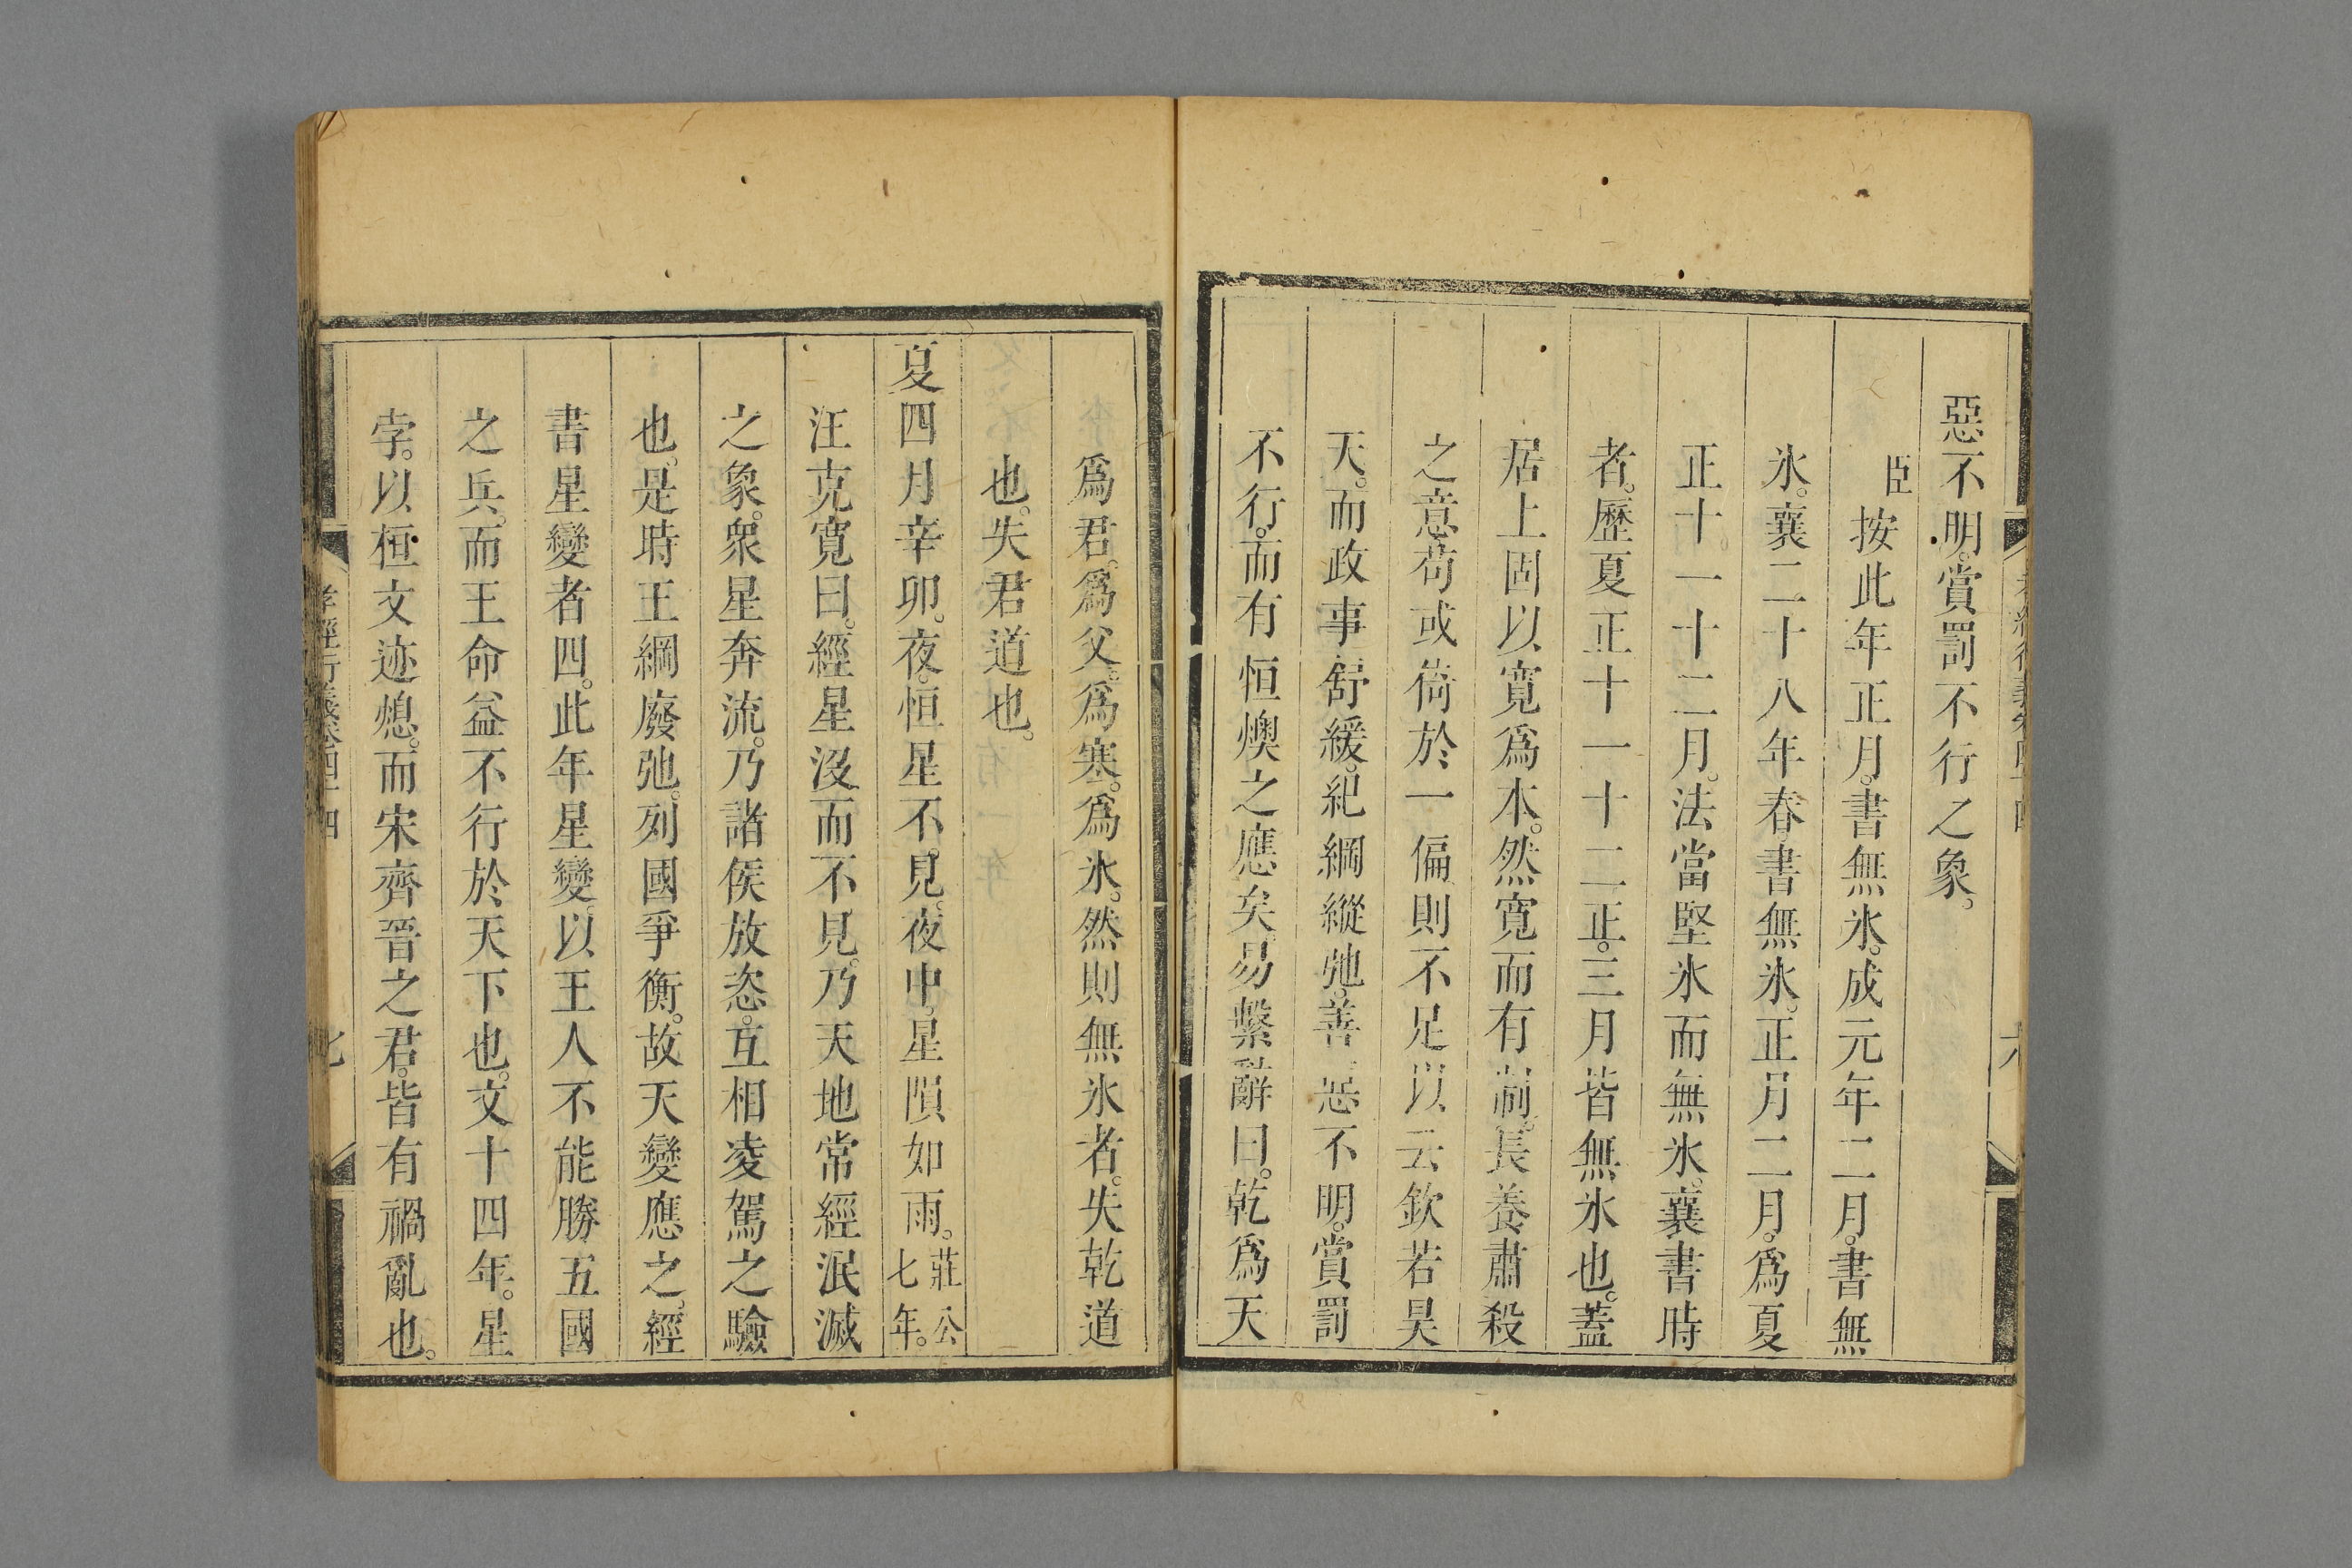 惡不明。賞罰不行之象。
臣按此年正月。書無氷。成元年二月。書無
氷。襄二十八年春書無氷。正月二月。爲夏
正十一十二月。法當堅氷而無氷。襄書時
者。歷夏正十一十二正。三月皆無氷也。蓋
居上固以寛爲本。然寛而有制。長養肅殺
之意苟或倚於一偏則不足以云欽若昊
天。而政事舒緩。紀綱縱弛。善惡不明。賞罰
不行。而有恒燠之應矣易繫辭曰。乾爲天
爲君。爲父。爲寒。爲氷。然則無氷者。失乾道
也。失君道也。
夏四月辛卯。夜。恒星不。見。夜中。星隕如雨。莊公七年。
汪克寛曰。經星沒而不見。乃天地常經泯滅
之象。衆星奔流。乃諸侯放恣。互相凌駕之驗
也。是時王綱廢弛。列國爭衡。故天變應之。經
書星變者四。此年星變。以王人不能勝五國
之兵。而王命益不行於天下也。文十四年。星
孛。以桓文迹熄。而宋齊晉之君。皆有禍亂也。
孝經衍義卷四十四